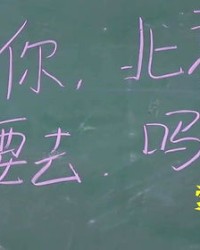 你,北
要去.吗